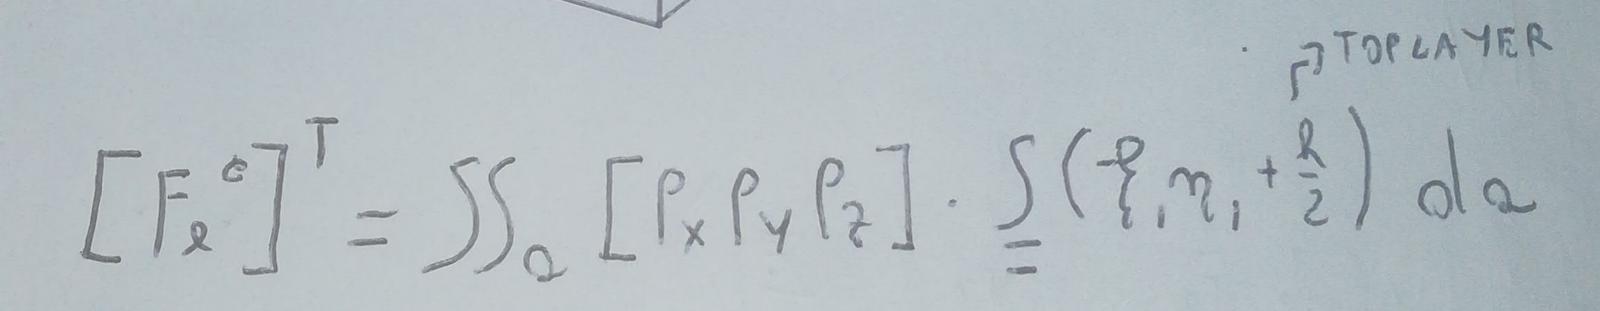 ↱ TOP LAYER
[F_ℓ^e]^T = ∬_a [P_x P_y P_z] · S̳(ξ, η, +h/2) da